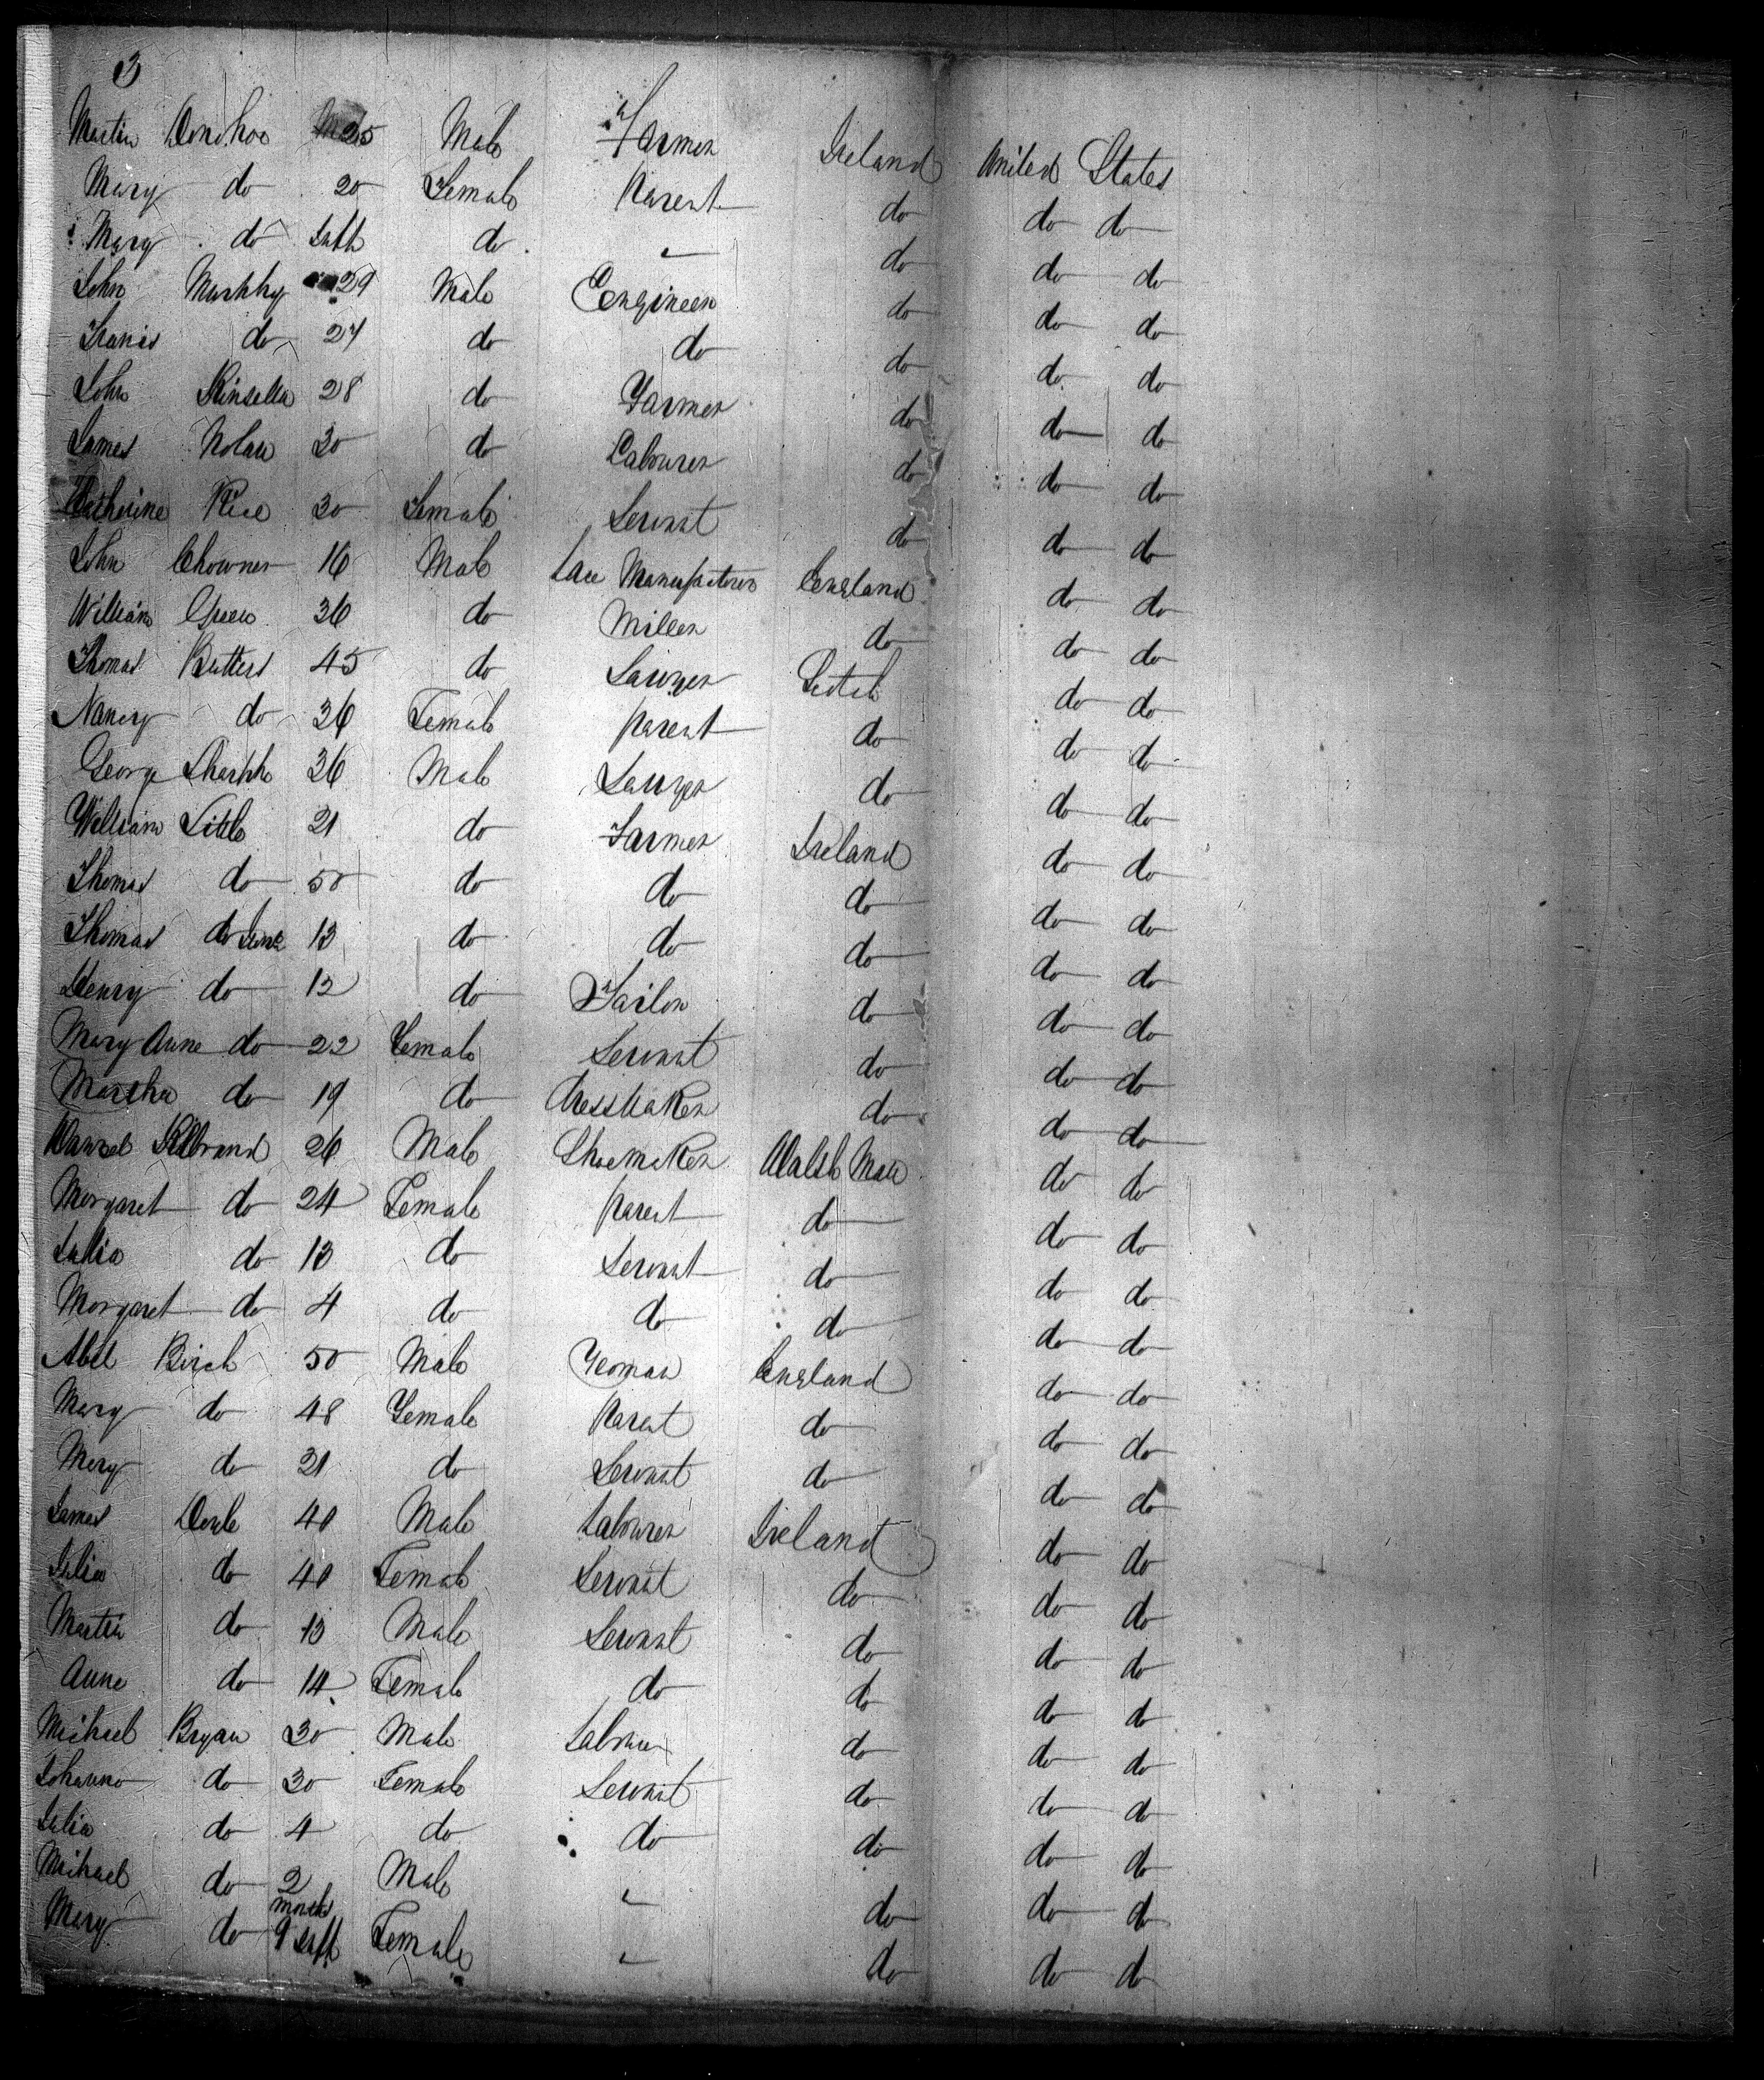 3
Martin Donohoo 25 Male Farmer Ireland United States
Mary do 20 Female Parent do do do
Mary do Infh do do do do
John Murphy 29 Male Engineer do do do
Francis do 27 do do do do do
John Kinsella 28 do Farmer do do do
James Nolan 30 do Labourer do do do
Catherine Rice 30 Female Servant do do do
John Chowner 16 Male Lace Manufacturer England do do
William Green 36 do Miller do do do
Thomas Butters 45 do Sawyer Scotch do do
Nancy do 36 Female parent do do do
George Sharpho 36 Male Sawyer do do do
William Little 21 do Farmer Ireland do do
Thomas do 50 do do do do do
Thomas do Junr 13 do do do do do
Henry do 12 do Tailor do do do
Mary Anne do 22 Female Servant do do do
Martha do 19 do Dressmaker do do do
Daniel 26 Male Shoemaker Walsh Man do do
Margaret do 24 Female parent do do do
Julia do 13 do Servant do do do
Margaret do 4 do do do do do
Abel Birch 50 Male Yeoman England do do
Mary do 48 Female Parent do do do
Mary do 21 do Servant do do do
James Doyle 40 Male Labourer Ireland do do
Julia do 40 Female Servant do do do
Martin do 13 Male Servant do do do
Anne do 14 Female do do do do
Michael Bryan 30 Male Labourer do do do
Johanna do 30 Female Servant do do do
Julia do 4 do do do do do
Michael do 2 Male do do do
Mary do 9 months Infh Female do do do